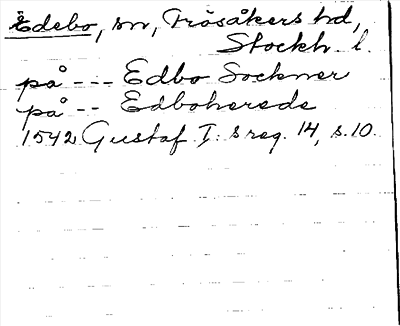 Edebo, sn, Frösåkers hd,
Stockh. l.
på --- Edbo Sockner
på -- Edboherede
1542 Gustaf I: s reg. 14, s. 10.